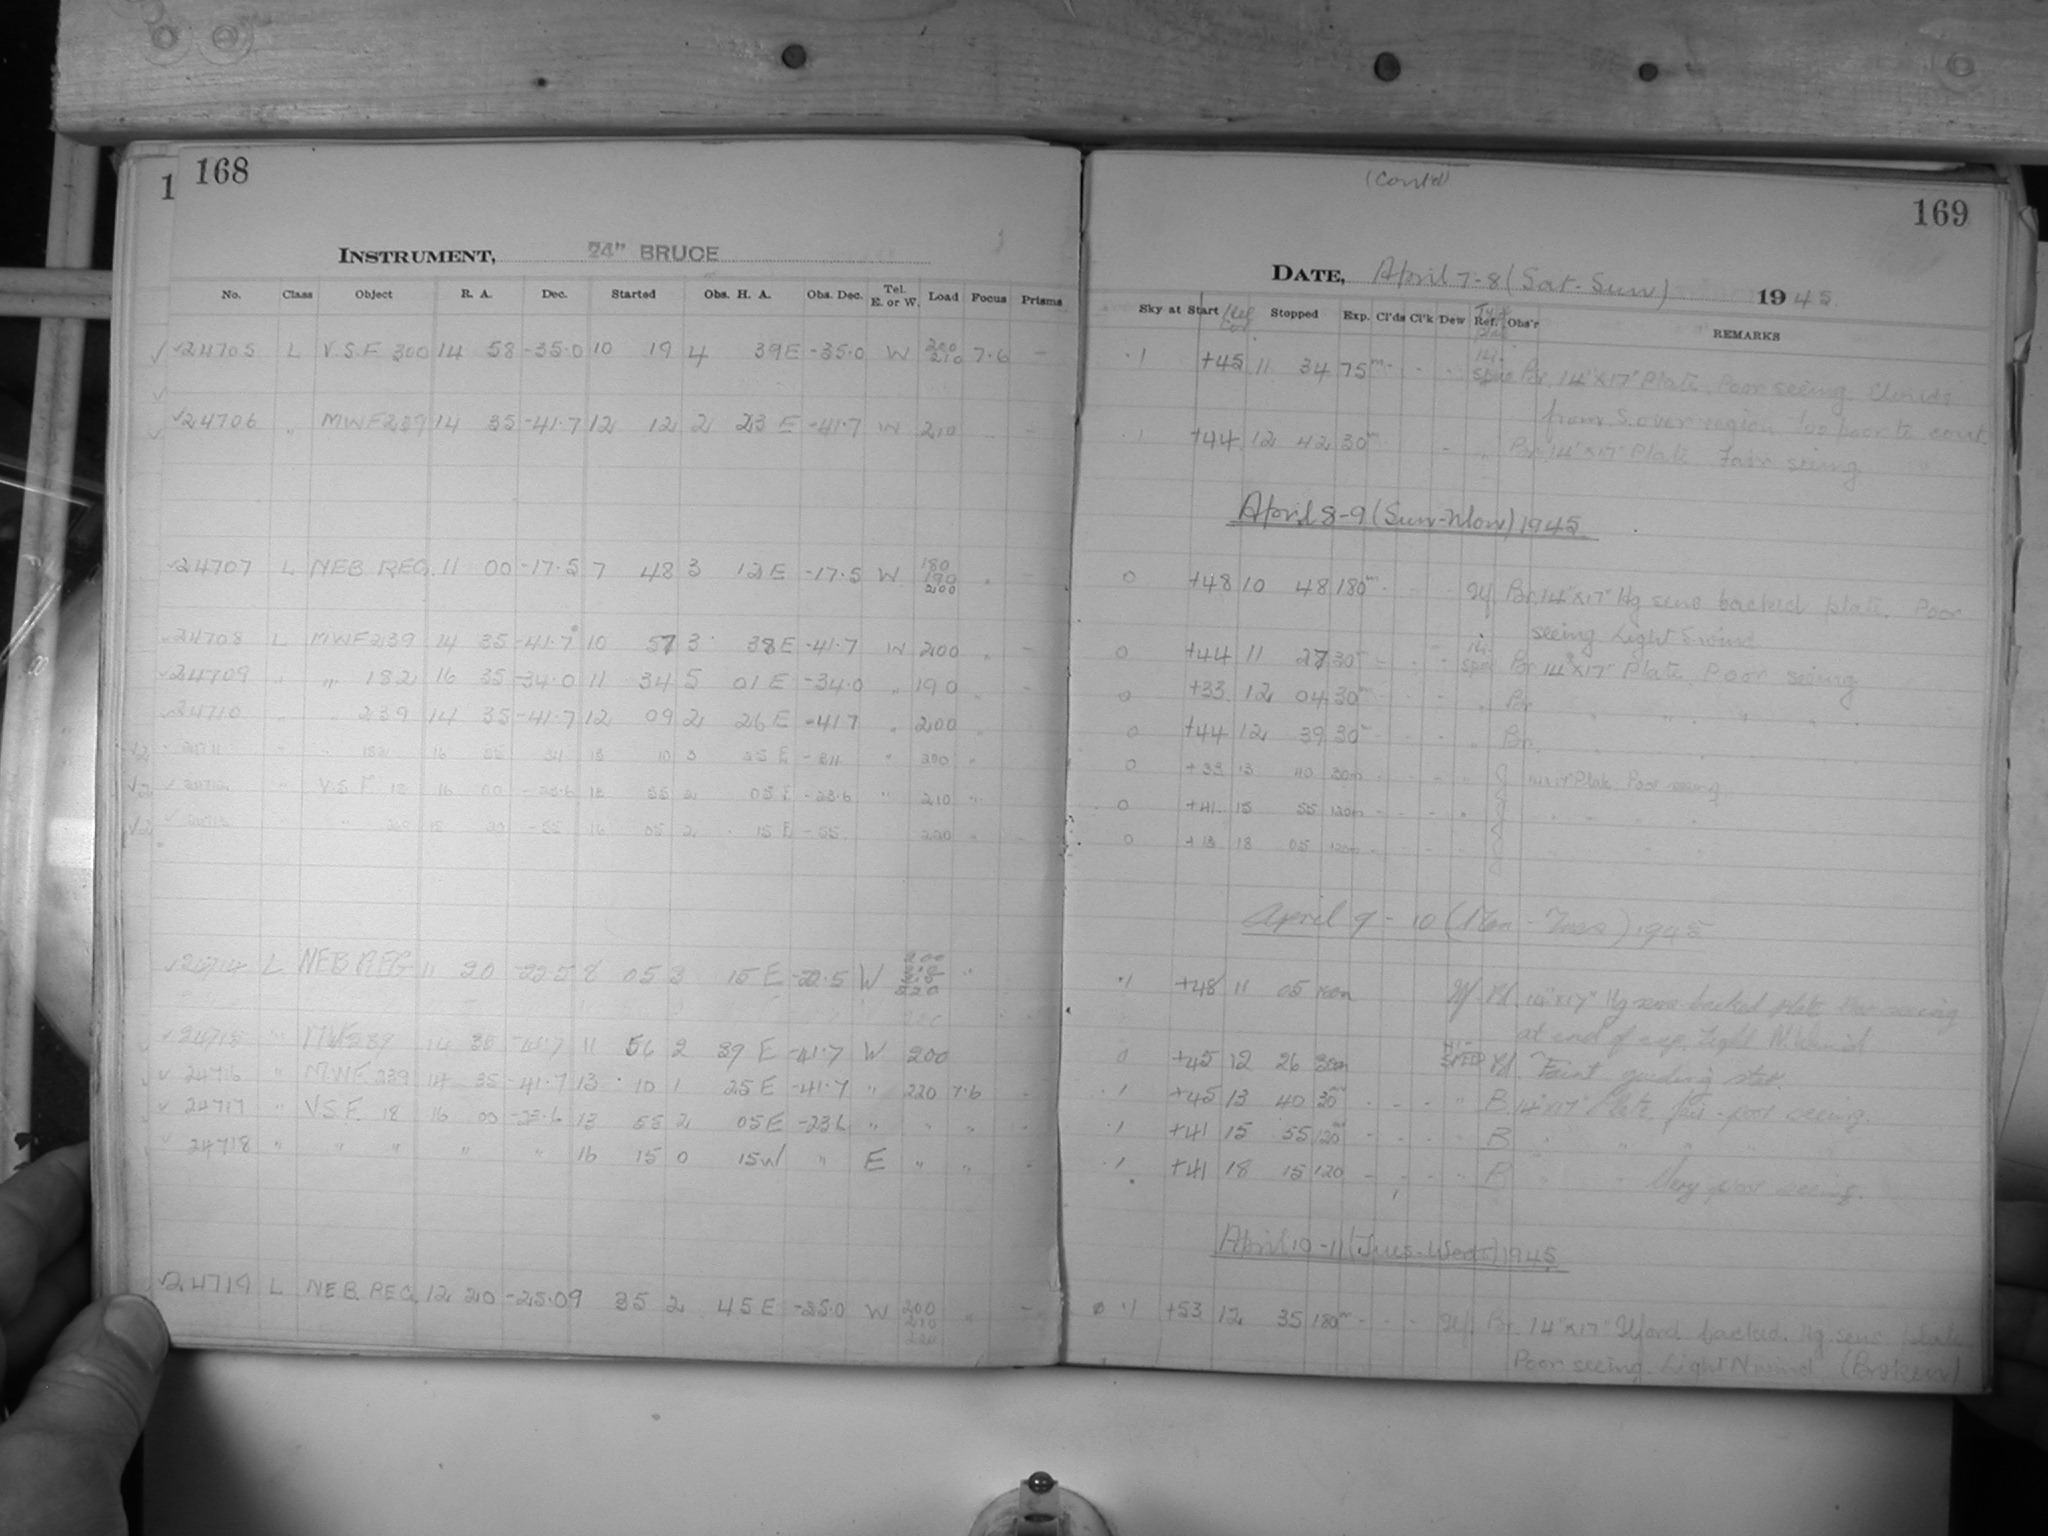 1 168
INSTRUMENT, 24" BRUCE
No. Class Object R. A. Dec. Started Obs. H. A. Obs. Dec. Tel. E. or W. Load Focus Prisms
✓24705 L V.S.F 300 14 58 -35.0 10 19 4 39E -35.0 W 200 210 7.6 -
✓24706 " MWF239 14 35 -41.7 12 12 2 23 E -41.7 W 210
✓24707 L NEB REG. 11 00 -17.5 7 48 3 12E -17.5 W 180 190 200
✓24708 L MWF239 14 35 -41.7 10 57 3 38E -41.7 W 200
✓24709 " " 182 16 35 -34.0 11 34 5 01 E -34.0 " 190
24710 " " 239 14 35 -41.7 12 09 2 26E -41.7 " 200
24711 " " 182 16 35 34 13 10 3 25 E " 200 "
✓ 24712 " V.S.F 18 16 00 -23.6 13 55 2 05 E -23.6 " 210 "
✓ 24713 " 15 20 -55 16 05 2 15 E -55 220
✓24714 L NEB REG 11 20 -22.5 8 05 3 15 E -22.5 W 200 220
✓24715 " MWF239 14 35 -41.7 11 56 2 39 E -41.7 W 200
✓ 24716 " MWF. 239 14 35 -41.7 13 10 1 25E -41.7 " 220 7.6
✓ 24717 " V.S.F. 18 16 00 -23.6 13 55 2 05E -23.6 " " "
✓ 24718 " " " " " 16 15 0 15W " E " "
✓24719 L NEB. REG. 12 20 -25.0 9 35 2 45E -25.0 W 200 210 220
(Cont'd)
169
DATE, April 7-8 (Sat-Sun) 1945
Sky at Start Stopped Exp. Cl'ds Cl'k Dew Ref. Obs'r REMARKS
.1 +45 11 34 75m - - - Br. 14"x17" Plate. Poor seeing. Clouds
from S. over region too poor to cont.
.1 +44 12 42 30m - " Br. 14"x17" Plate Fair seeing
April 8-9 (Sun-Mon) 1945
0 +48 10 48 180m Br. 14"x17" Hg sens backed plate. Poor
seeing Light S wind
0 +44 11 27 30m Br 14"x17" Plate Poor seeing
0 +33 12 04 30m " Br " " " "
0 +44 12 39 30m " Br.
0 +33 13 40 30m " J 14x17 Plate Poor seeing
0 +41 15 55 120m " J
0 +13 18 05 120m J
April 9-10 (Mon-Tues) 1945
.1 +48 11 05 180m 14"x17" Hg sens backed plate Poor seeing
at end of exp. Light N. Wind
0 +45 12 26 30m SPEED Faint guiding star.
.1 +45 13 40 30m " B 14"x17" Plate fair-poor seeing.
.1 +41 15 55 120m B " " "
.1 +41 18 15 120 B " " Very poor seeing.
April 10-11 (Tues-Weds) 1945
.1 +53 12 35 180m Br. 14"x17" Ilford backed. Hg sens plate
Poor seeing. Light N wind (Broken)